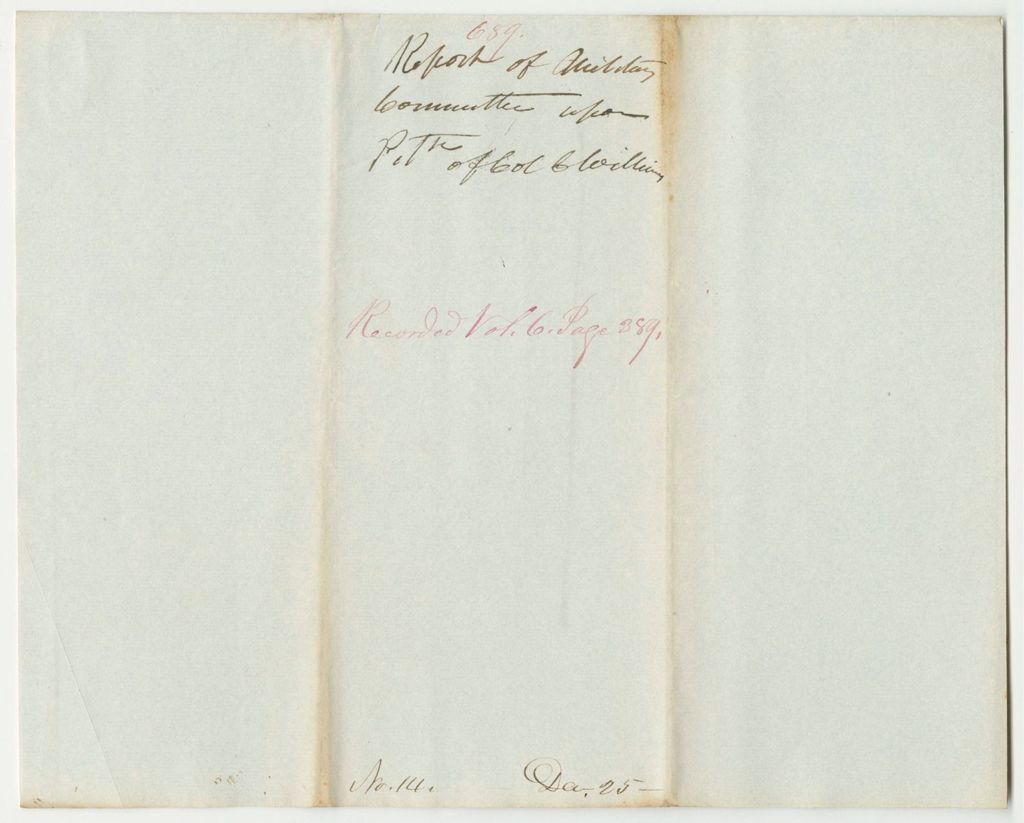 689.
Report of Military
Committee upon
Pt.n of Col C Williams
Recorded Vol. 6. Page 389.
No. 14. Da. 25—